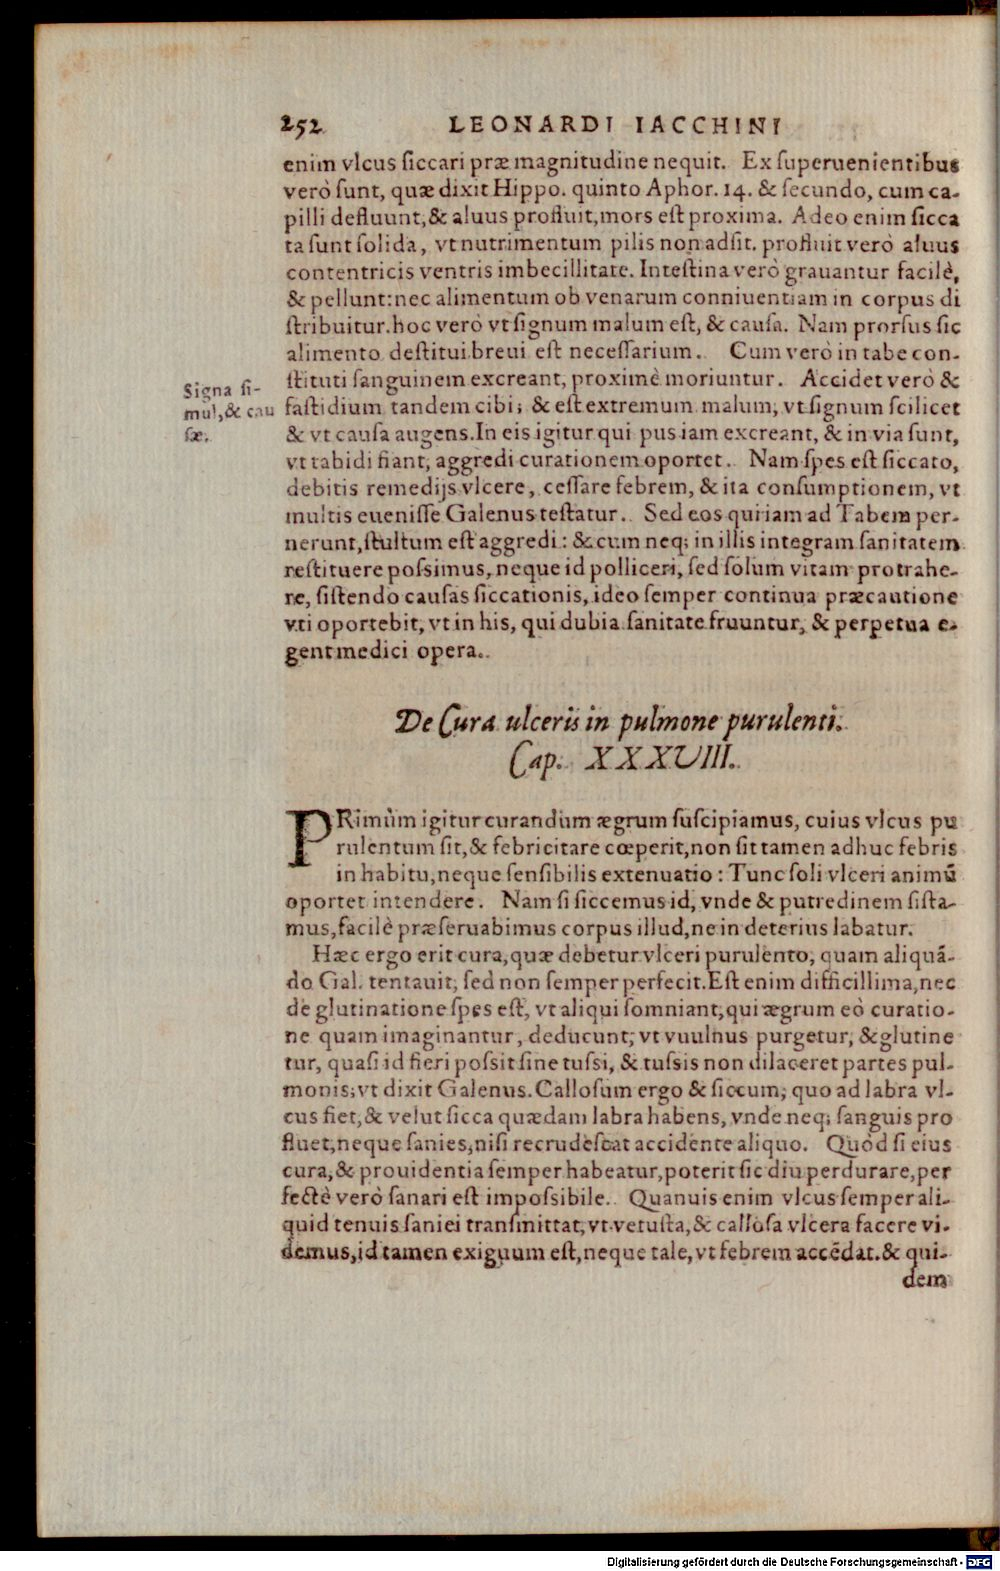 252 LEONARDI IACCHINI
enim vlcus siccari præ magnitudine nequit. Ex superuenientibus
verò sunt, quæ dixit Hippo. quinto Aphor. 14. & secundo, cum ca-
pilli defluunt, & aluus profluit, mors est proxima. Adeo enim sicca
ta sunt solida, vt nutrimentum pilis non adsit. profluit verò aluus
contentricis ventris imbecillitate. Intestina verò grauantur facilè,
& pellunt: nec alimentum ob venarum conniuentiam in corpus di
stribuitur. hoc verò vt signum malum est, & causa. Nam prorsus sic
alimento destitui breui est necessarium. Cum verò in tabe con-
stituti sanguinem excreant, proximè moriuntur. Accidet verò &
Signa si-
mul, & cau
sæ.
fastidium tandem cibi; & est extremum malum, vt signum scilicet
& vt causa augens. In eis igitur qui pus iam excreant, & in via sunt,
vt tabidi fiant, aggredi curationem oportet. Nam spes est siccato,
debitis remedijs vlcere, cessare febrem, & ita consumptionem, vt
multis euenisse Galenus testatur. Sed eos qui iam ad Tabem per-
nerunt, stultum est aggredi: & cum neq; in illis integram sanitatem
restituere possimus, neque id polliceri, sed solum vitam protrahe-
re, sistendo causas siccationis, ideo semper continua præcautione
vti oportebit, vt in his, qui dubia sanitate fruuntur, & perpetua e-
gent medici opera.
De Cura ulceris in pulmone purulenti.
Cap. XXXVIII.
PRimùm igitur curandum ægrum suscipiamus, cuius vlcus pu
rulentum sit, & febricitare cœperit, non sit tamen adhuc febris
in habitu, neque sensibilis extenuatio: Tunc soli vlceri animũ
oportet intendere. Nam si siccemus id, vnde & putredinem sista-
mus, facilè præseruabimus corpus illud, ne in deterius labatur.
Hæc ergo erit cura, quæ debetur vlceri purulento, quam aliquã-
do Gal. tentauit, sed non semper perfecit. Est enim difficillima, nec
de glutinatione spes est, vt aliqui somniant, qui ægrum eò curatio-
ne quam imaginantur, deducunt, vt vuulnus purgetur, & glutine
tur, quasi id fieri possit sine tussi, & tussis non dilaceret partes pul-
monis, vt dixit Galenus. Callosum ergo & siccum, quo ad labra vl-
cus fiet, & velut sicca quædam labra habens, vnde neq; sanguis pro
fluet, neque sanies, nisi recrudescat accidente aliquo. Quòd si eius
cura, & prouidentia semper habeatur, poterit sic diu perdurare, per
fectè verò sanari est impossibile. Quanuis enim vlcus semper ali-
quid tenuis saniei transmittat, vt vetusta, & callosa vlcera facere vi-
demus, id tamen exiguum est, neque tale, vt febrem accẽdat. & qui-
dem
Digitalisierung gefördert durch die Deutsche Forschungsgemeinschaft - DFG